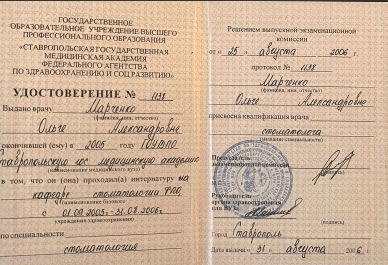 ГОСУДАРСТВЕННОЕ
ОБРАЗОВАТЕЛЬНОЕ УЧРЕЖДЕНИЕ ВЫСШЕГО
ПРОФЕССИОНАЛЬНОГО ОБРАЗОВАНИЯ
«СТАВРОПОЛЬСКАЯ ГОСУДАРСТВЕННАЯ
МЕДИЦИНСКАЯ АКАДЕМИЯ
ФЕДЕРАЛЬНОГО АГЕНТСТВА
ПО ЗДРАВООХРАНЕНИЮ И СОЦРАЗВИТИЮ»
УДОСТОВЕРЕНИЕ № 1138
Выдано врачу Марченко
(фамилия, имя, отчество)
Ольге Александровне
окончившей (ему) в 2005 году
Ставропольскую гос. медицинскую академию
(наименование медицинского вуза)
в том, что он (она) проходил(а) интернатуру на
кафедре стоматологии ФПО
(наименование базового
с 01.09.2005г-31.08.2006г
учреждения здравоохранения)
по специальности
стоматология
Решением выпускной экзаменационной
комиссии
от «25» августа 2006 г.
протокол № 1138
Марченко
(фамилия, имя, отчество)
Ольге Александровне
присвоена квалификация врача
стоматолога
(название специальности)
Председатель
экзаменационной комиссии
(подпись)
Руководитель
органа здравоохранения
или ВУЗа
(подпись)
Город Ставрополь
Дата выдачи «31» августа 2006 г.